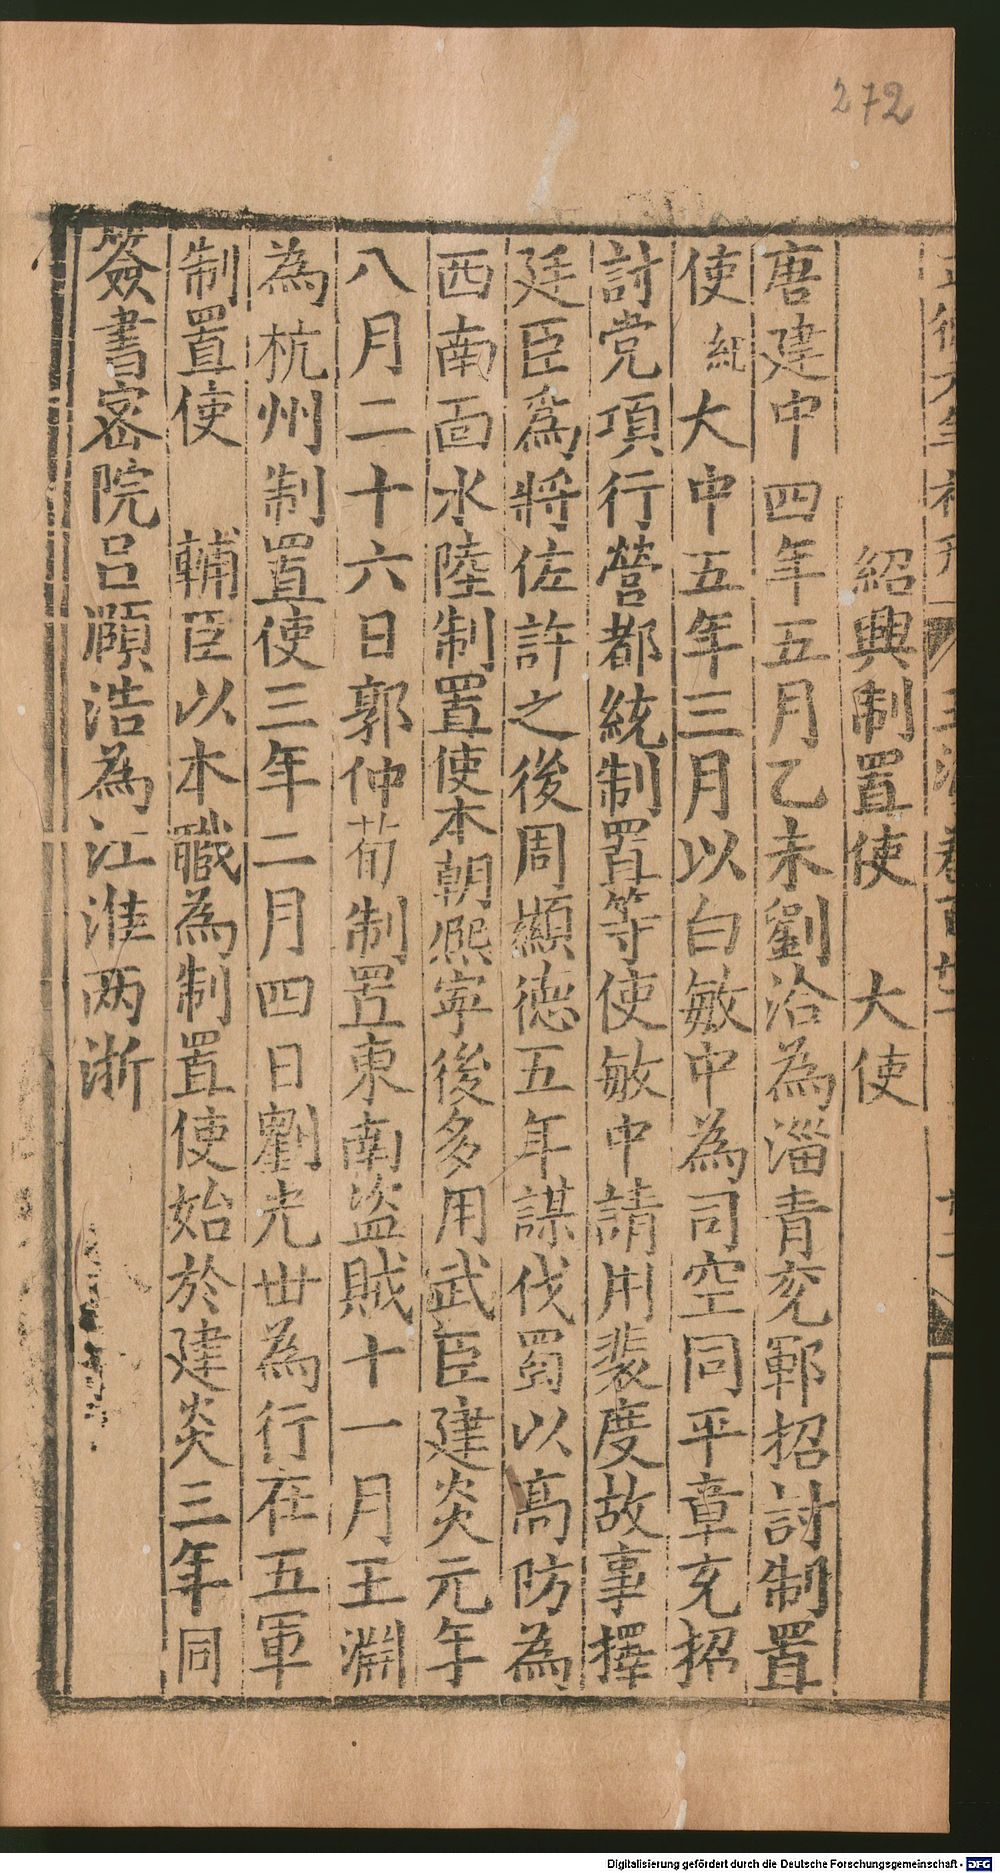 272
紹興制置使 大使
唐建中四年五月乙未劉洽為淄青兖鄆招討制置
使紀大中五年三月以白敏中為司空同平章充招
討党項行營都統制置等使敏中請用裴度故事擇
廷臣爲將佐許之後周顯德五年謀伐蜀以高防為
西南面水陸制置使本朝熈寧後多用武臣建炎元年
八月二十六日郭仲荀制置東南盗賊十一月王淵
為杭州制置使三年二月四日劉光丗為行在五軍
制置使 輔臣以本職為制置使始於建炎三年同
簽書密院吕頤浩為江淮两浙
Digitalisierung gefördert durch die Deutsche Forschungsgemeinschaft - DFG